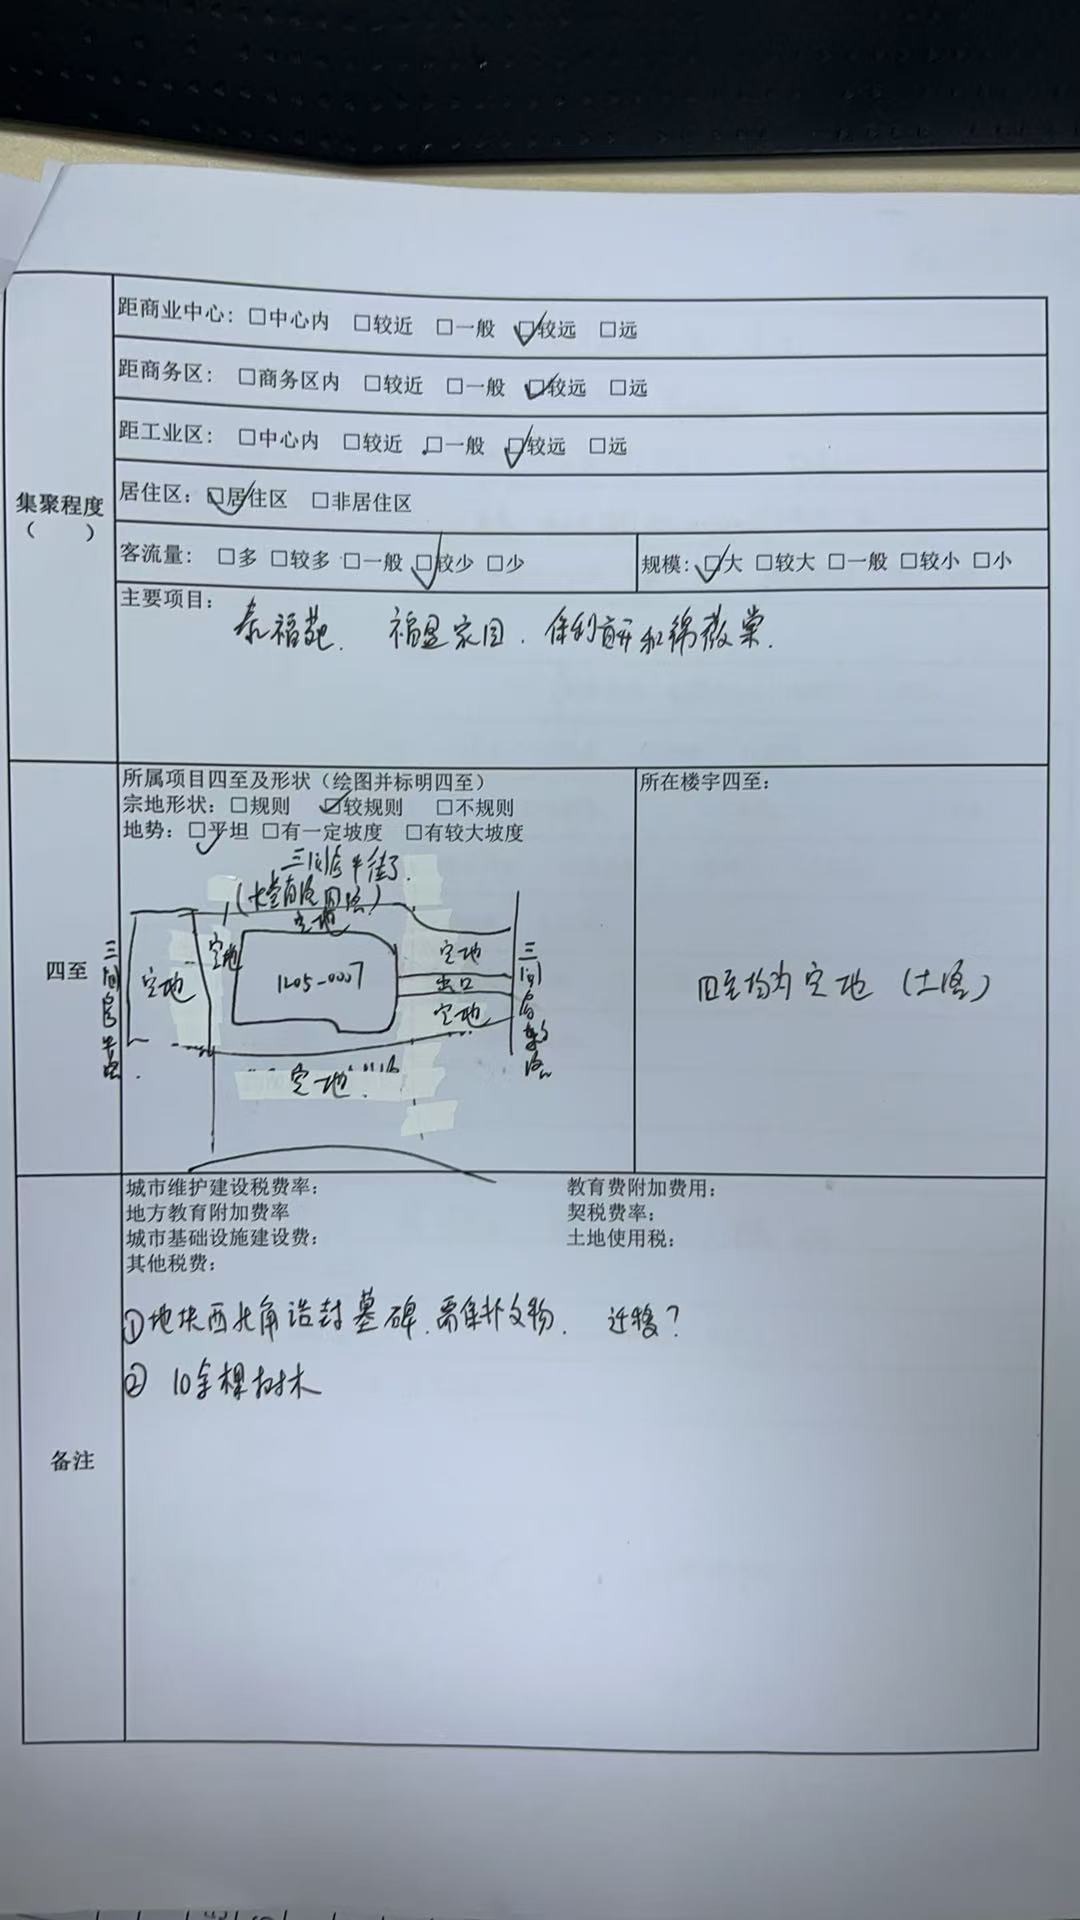 距商业中心：□中心内 □较近 □一般 ☑较远 □远
距商务区： □商务区内 □较近 □一般 ☑较远 □远
距工业区： □中心内 □较近 □一般 ☑较远 □远
居住区：☑居住区 □非居住区
集聚程度
（ ）
客流量： □多 □较多 □一般 ☑较少 □少
规模：☑大 □较大 □一般 □较小 □小
主要项目：
泰福苑. 福盈家园. 保利首开和锦薇棠.
四至
所属项目四至及形状（绘图并标明四至）
宗地形状：□规则 ☑较规则 □不规则
地势：☑平坦 □有一定坡度 □有较大坡度
三间房
空地
空地
空地
1205-0007
空地
出口
空地
三间房
空地.
所在楼宇四至：
四至均为空地（土路）
城市维护建设税费率：
教育费附加费用：
地方教育附加费率
契税费率：
城市基础设施建设费：
土地使用税：
其他税费：
①地块西北角诰封墓碑.需保护文物. 迁移？
② 10余棵树木
备注